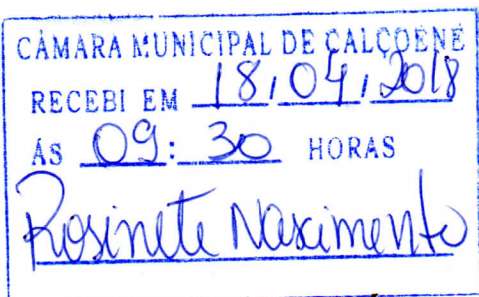 CÂMARA MUNICIPAL DE CALÇOENE
RECEBI EM 18/04/2018
ÁS 09:30 HORAS
Rosinete Nascimento